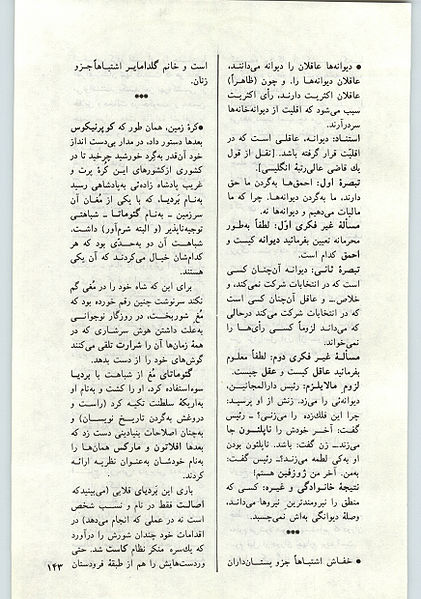 • دیوانه‌ها عاقلان را دیوانه می‌دانند،
عاقلان دیوانه‌ها را. و چون (ظاهراً)
عاقلان اکثریت دارند، رأی اکثریت
سبب می‌شود که اقلیت از دیوانه‌خانه‌ها
سردرآرند.
استناد: دیوانه، عاقلی است که در
اقلیّت قرار گرفته باشد. [نقل از قول
یك قاضی عالی‌رتبهٔ انگلیسی].
تبصرهٔ اول: احمق‌ها به‌گردن ما حق
دارند، ما به‌گردن دیوانه‌ها. چرا که ما
مالیات می‌دهیم و دیوانه‌ها نه.
مسألهٔ غیر فکری اوّل: لطفاً به‌طور
محرمانه تعیین بفرمائید دیوانه کیست و
احمق کدام است.
تبصرهٔ ثانی: دیوانه آن‌چنان کسی
است که در انتخابات شرکت نمی‌کند، و
خلاص... و عاقل آن‌چنان کسی است
که در انتخابات شرکت می‌کند درحالی
که می‌داند لزوماً کسی رأی‌ها را
نمی‌خواند.
مسألهٔ غیر فکری دوم: لطفاً معلوم
بفرمائید عاقل کیست و عقل چیست.
لزوم مالایلزم: رئیس دارالمجانین،
دیوانه‌ئی را می‌زد. زنش از او پرسید:
چرا این فلك‌زده را می‌زنی؟ــ رئیس
گفت: آخر خودش را ناپلئون جا
می‌زند. زن گفت: باشد. ناپلئون بودن
او به‌کی لطمه می‌زند؟ـ رئیس گفت:
به‌من. آخر من ژوزفین هستم!
نتیجهٔ خانوادگی و غیره: کسی که
منطق را نیرومندترین نیروها می‌داند،
وصلهٔ دیوانگی به‌اش نمی‌چسبد.
***
• خفاش اشتباهاً جزو پستان‌داران
است و خانم گلدامایر اشتباهاً جزو
زنان.
***
• کرهٔ زمین، همان طور که کوپرنیکوس
بعدها دستور داد، در مدار بی‌دست انداز
خود آن‌قدر به‌گرد خورشید چرخید تا در
کشوری ازکشورهای این کرهٔ پرت و
غریب پادشاه زاده‌ئی به‌پادشاهی رسید
به‌نام بَردیا، که با یکی از مُغان آن
سرزمین ــ به‌نام گئوماتا ــ شباهتی
توجیه‌ناپذیر (و البته شرم‌آور) داشت.
شباهت آن دو به‌حدّی بود که هر
کدام‌شان خیال می‌کردند که آن یکی
هستند.
برای این که شاه خود را در مُغی گم
نکند سرنوشت چنین رقم خورده بود که
مُغِ شوربخت، در روزگار نوجوانی
به‌علت داشتن هوش سرشاری که در
همهٔ زمان‌ها آن را شرارت تلقی می‌کنند
گوش‌های خود را از دست بدهد.
گئوماتای مُغ از شباهت با بردیا
سوءاستفاده کرد، او را کشت و به‌نام او
به‌اریکهٔ سلطنت تکیه کرد (راست و
دروغش به‌گردن تاریخ نویسان) و
به‌چنان اصلاحات بنیادینی دست زد که
بعدها افلاتون و مارکس همان‌ها را
به‌نام خودشان به‌عنوان نظریه ارائه
کردند.
بازی این بَردیای قلابی (می‌بینیدکه
اصالت فقط در نام و نسب شخص
است نه در عملی که انجام می‌دهد) در
اقدامات خود چندان شورش را درآورد
که یك‌سره منکر نظام کاست شد. حتی
وردست‌هایش را هم از طبقهٔ فرودستان
۱۴۳